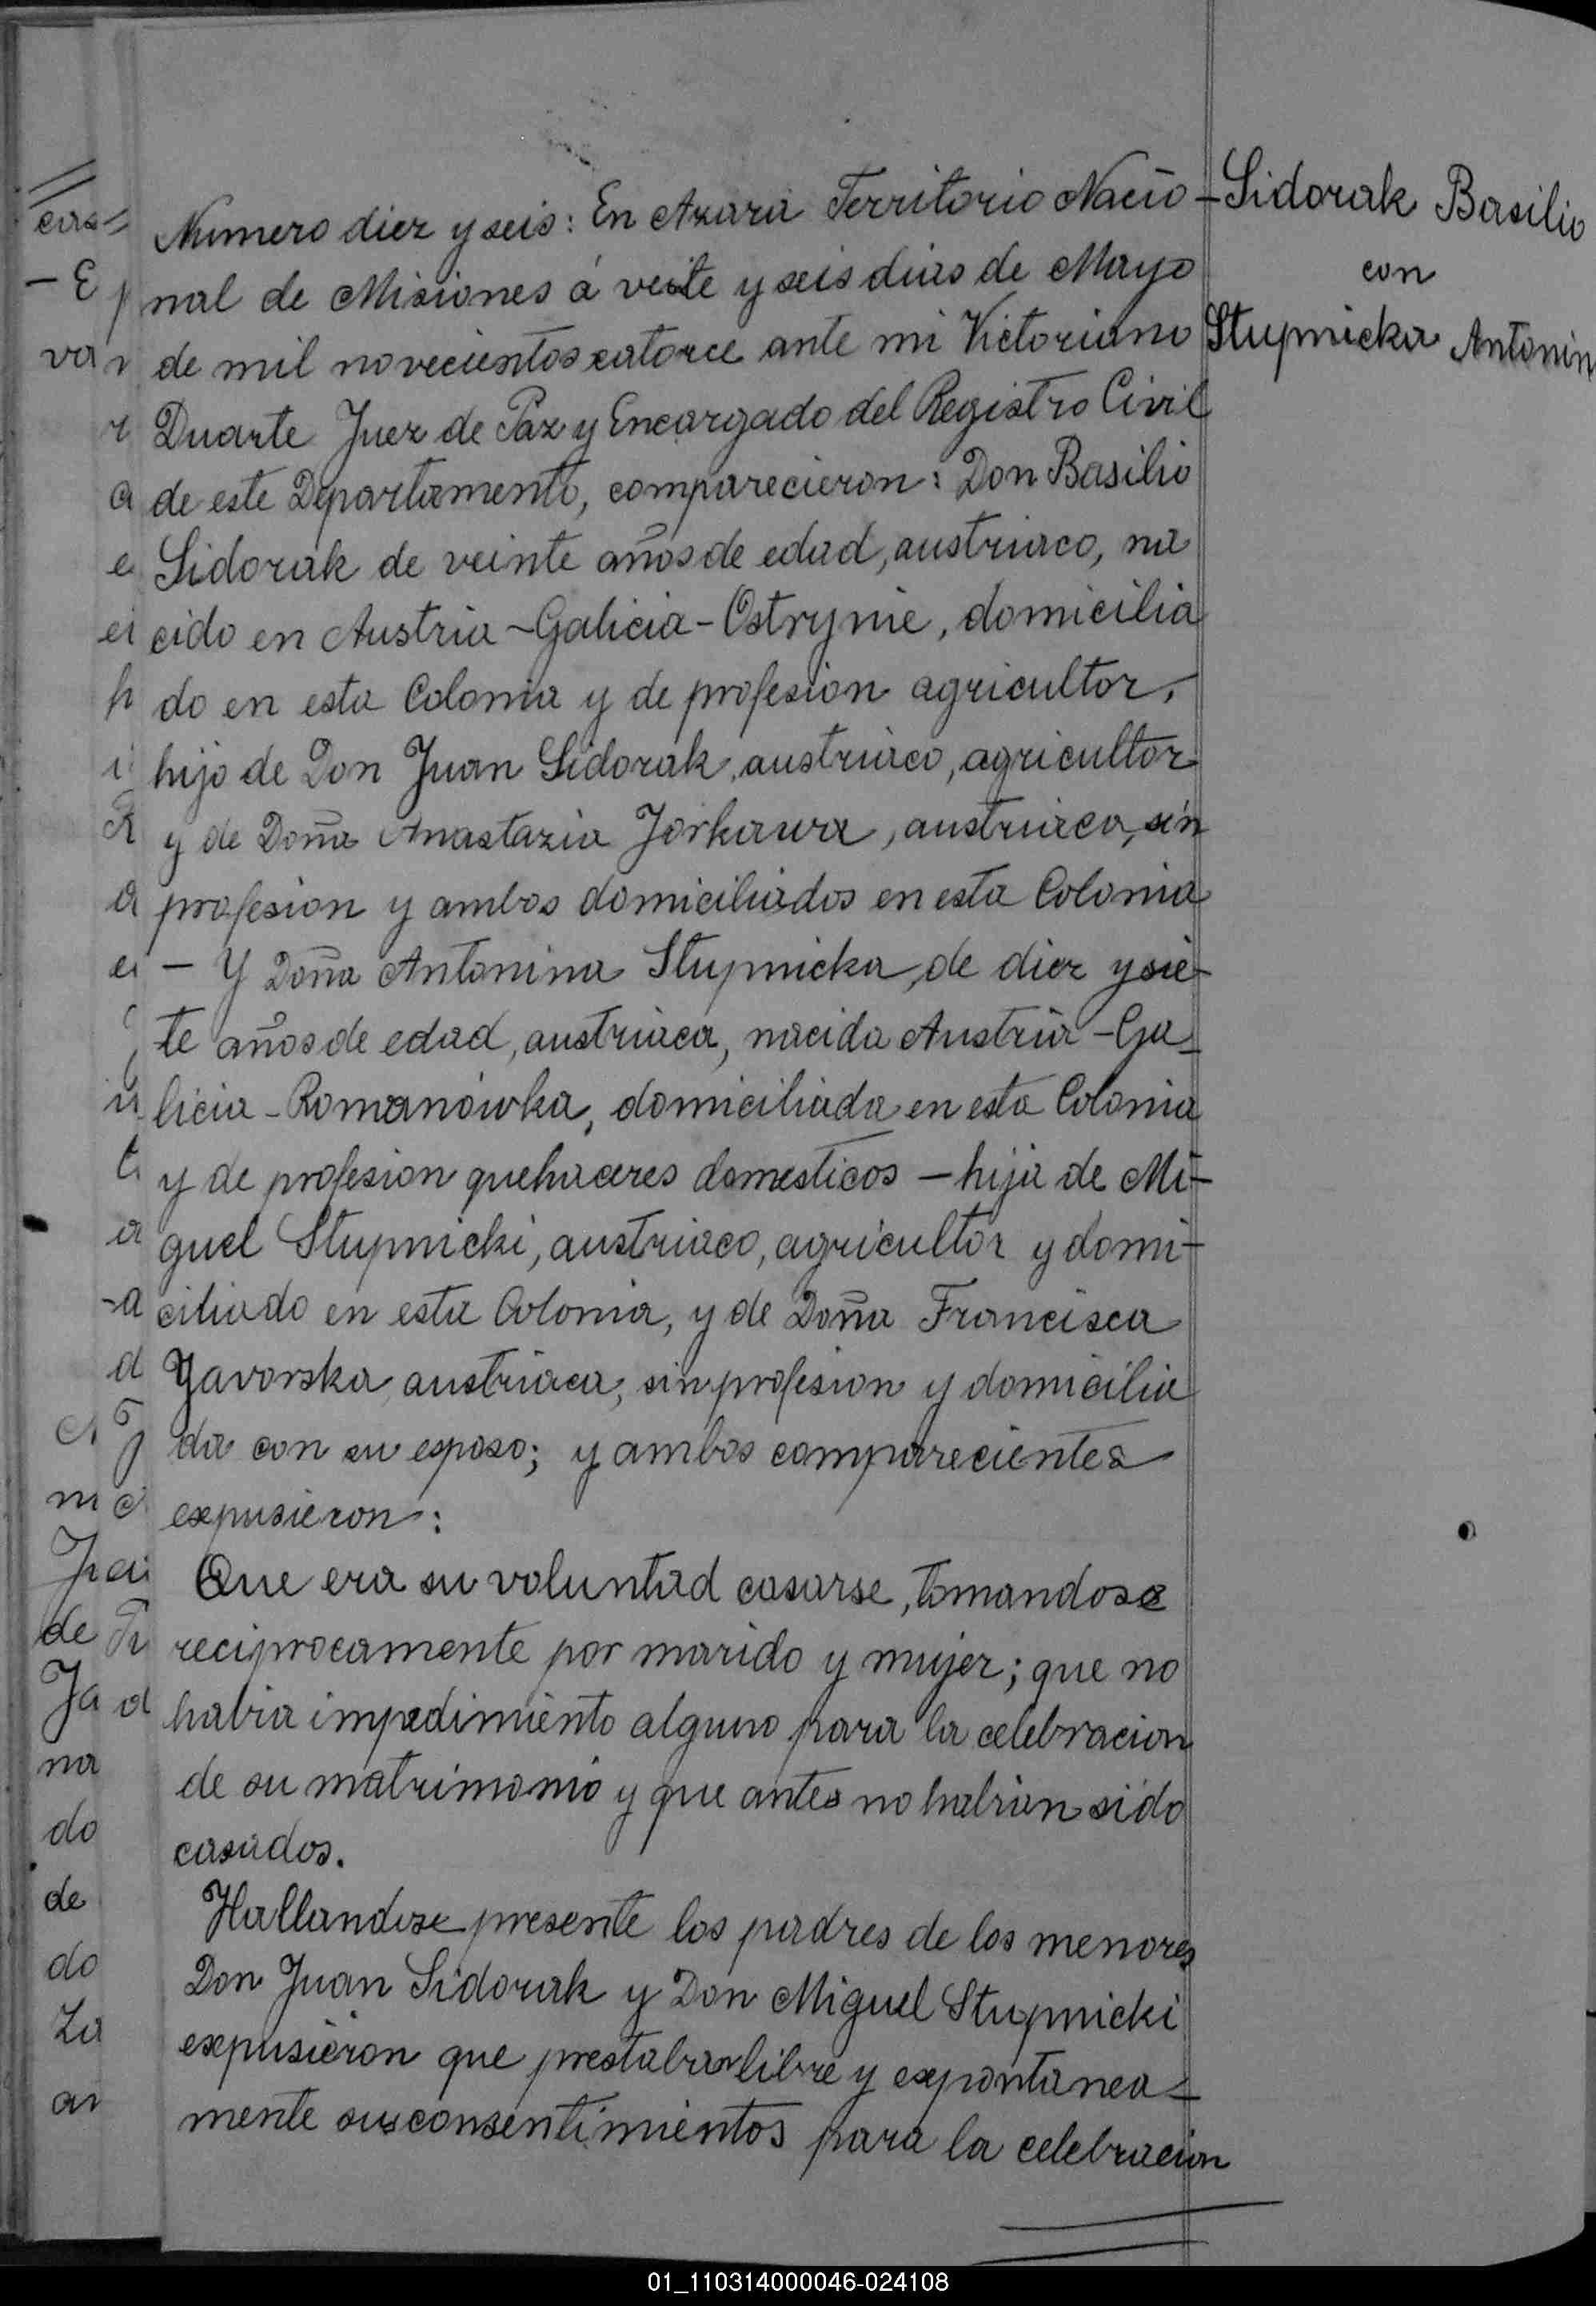 Numero diez y seis: En Azara Territorio Nacio-
nal de Misiones á veite y seis dias de Mayo
de mil novecientos catorce ante mi Victoriano
Duarte Juez de Paz y Encargado del Registro Civil
de este Departamento, comparecieron: Don Basilio
Sidorak de veinte años de edad, austriaco, na
cido en Austria-Galicia-Ostrynie, domicilia
do en esta Colonia y de profesion agricultor,
hijo de Don Juan Sidorak, austriaco, agricultor
y de Doña Anastazia Jorkawa, austriaca, sin
profesion y ambos domiciliados en esta Colonia
- Y Doña Antonina Stupnicka, de diez y sie-
te años de edad, austriaca, nacida Austria-Ga-
licia-Romanówka, domiciliada en esta Colonia
y de profesion quehaceres domesticos - hija de Mi-
guel Stupnicki, austriaco, agricultor y domi-
ciliado en esta Colonia, y de Doña Francisca
Yavorska, austriaca, sin profesion y domicilia
da con su esposo; y ambos comparecientes
expusieron:
Que era su voluntad casarse, tomandose
reciprocamente por marido y mujer; que no
habia impedimiento alguno para la celebracion
de su matrimonio y que antes no habian sido
casados.
Hallandose presente los padres de los menores
Don Juan Sidorak y Don Miguel Stupnicki
expusieron que prestaban libre y expontanea-
mente sus consentimientos para la celebracion
Sidorak Basilio
con
Stupnicka Antonin
01_110314000046-024108